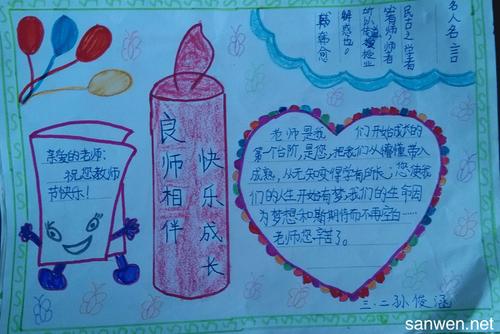 名人名言
古之学者
必有师,师者
所以传道授业
解惑也。
韩愈
良师相伴
快乐成长
亲爱的老师:
祝您教师
节快乐!
老师是我们开始成长的
第一个台阶,是您,把我们从懵懂带入
成熟,从无知变得学有所长;您使我
们的人生开始有梦,我们的生命因
为梦想和期待而不再空白……
老师您辛苦了。
三.二孙俊涵
sanwen.net